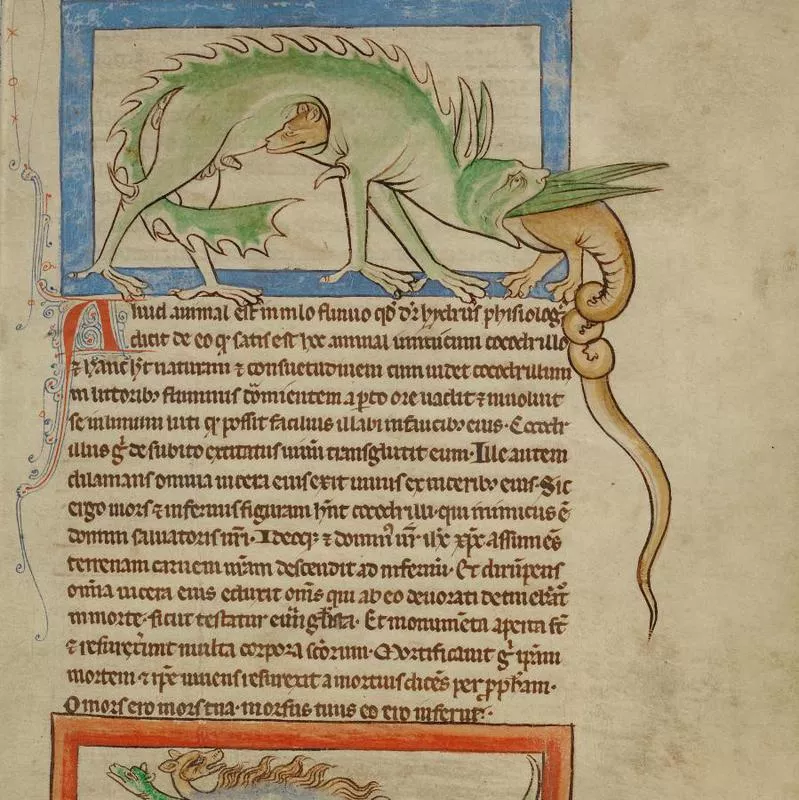 Aliud animal est in nilo fluuio qd̄ dr̄ hydrus phisiolog᷒
dicit de eo qꝛ satis est hoc animal inimicum cocodrillo
⁊ hanc hr̄ naturam ⁊ consuetudinem cum uidet cocodrillum
in littoribꝫ fluminis dormientem aperto ore uadit ⁊ inuoluit
se in limum luti qꝛ possit facilius illabi in faucibꝫ eius. Cocodr
illus g̊ de subito excitatus uiuum transglutit eum. Ille autem
dilanians omnia uicera eius exit uiuus ex uiceribꝫ eius. Sic
ergo mors ⁊ infernus figuram hn̄t cocodrilli. qui inimicus ē
domini saluatoris nr̄i. Ideoqꝫ ⁊ dominꝰ nr̄ ihc xp̄c assumēs
terrenam carnem nr̄am descendit ad infernū. Et dirūpens
omīa uicera eius eduxit om̄s qui ab eo deuorati
in morte. sicut testatur eūngl̄ista. Et monumēta aperta st̄
⁊ resurrexerunt multa corpora sc̄orum. Mortificauit g̊ ip̄am
mortem ⁊ ip̄e uiuens resurrexit a mortuis dicēs per ꝓph̄am.
O mors ero mors tua. morsus tuus ero inferne.